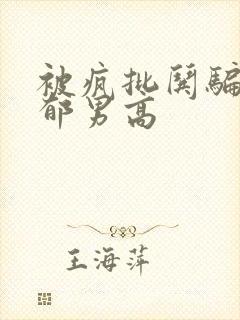 被疯批闋騙
郁男高
王海萍